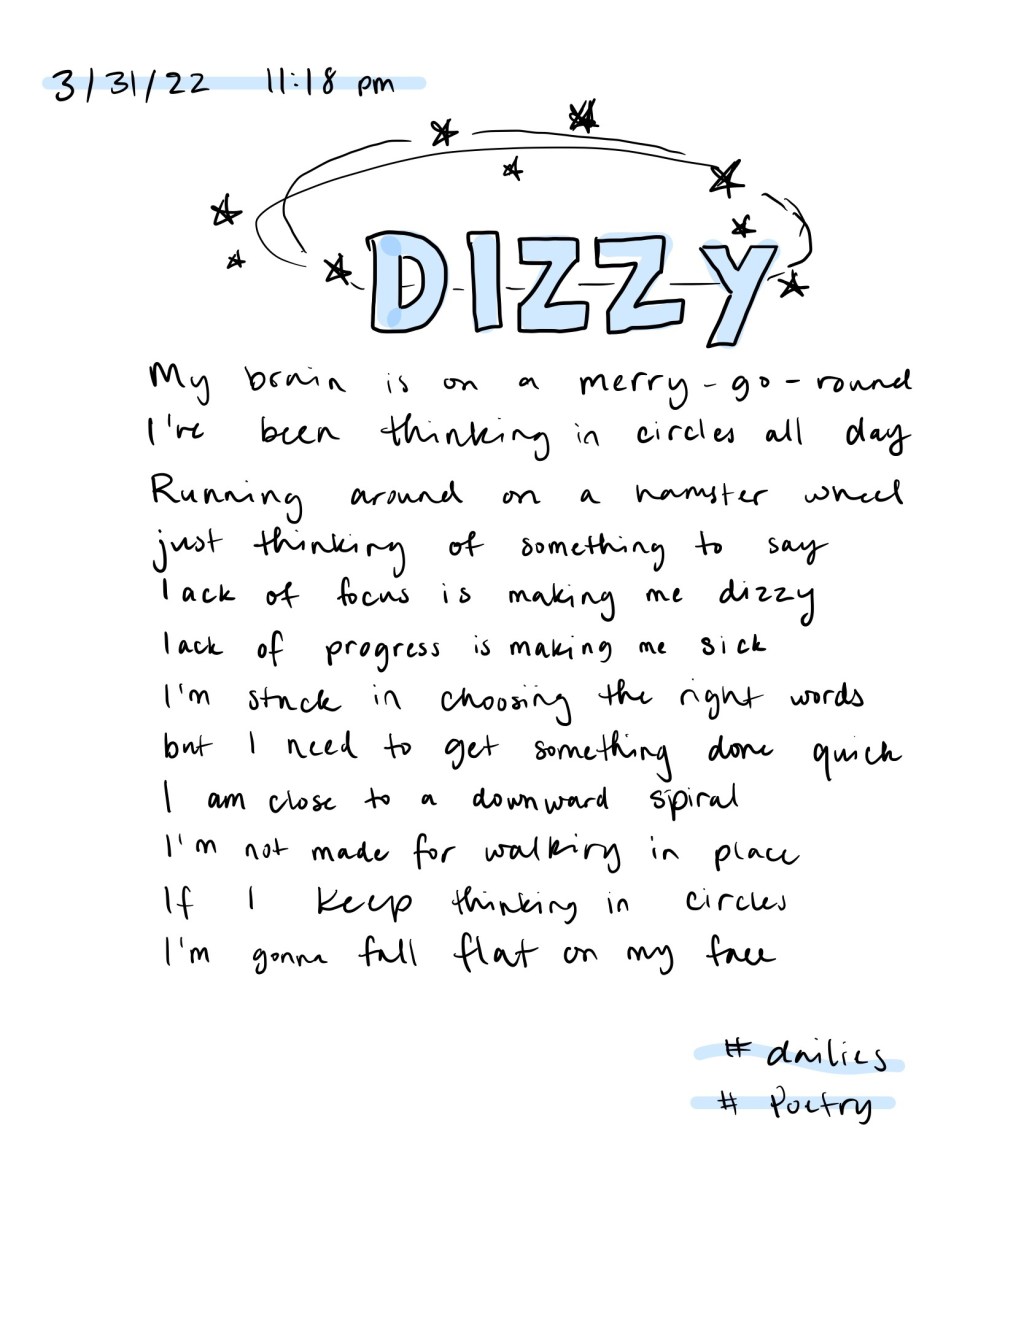 3/31/22 11:18 pm
DIZZY
My brain is on a merry-go-round
I've been thinking in circles all day
Running around on a hamster wheel
just thinking of something to say
lack of focus is making me dizzy
lack of progress is making me sick
I'm stuck in choosing the right words
but I need to get something done quick
I am close to a downward spiral
I'm not made for walking in place
If I keep thinking in circles
I'm gonna fall flat on my face
# dailies
# Poetry